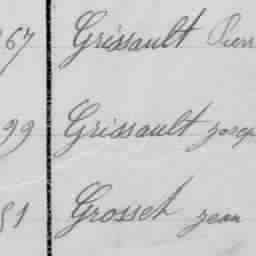 67 Grissault Pierr
99 Grissault josep
51 Grosset jean